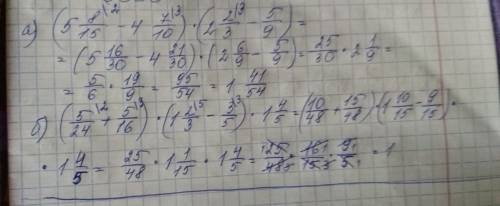 а) (5 8/15 \2 − 4 7/10 \3) · (2 2/3 \3 − 5/9) =
= (5 16/30 − 4 21/30) · (2 6/9 − 5/9) = 25/30 · 2 1/9 =
= 5/6 · 19/9 = 95/54 = 1 41/54
б) (5/24 \2 + 5/16 \3) · (1 2/3 \5 − 3/5 \3) · 1 4/5 = (10/48 + 15/48) (1 10/15 − 9/15) ·
· 1 4/5 = 25/48 · 1 1/15 · 1 4/5 = 25/48 · 16/15 · 9/5 = 1